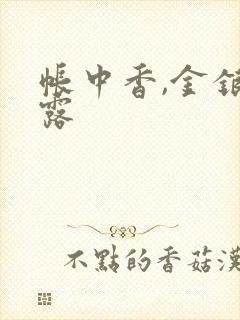 帳中香,金銀
露
不點的香菇漢